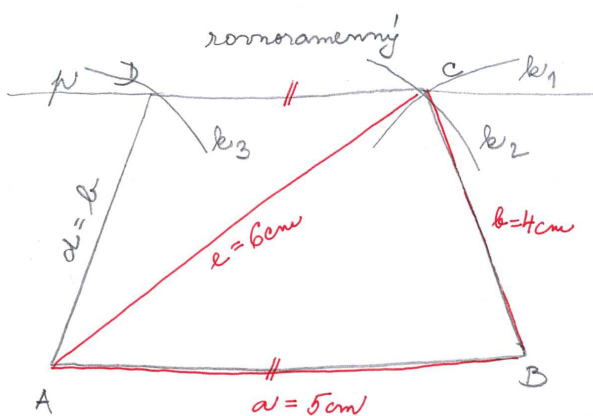 rovnoramenný
p D C k1
k3 k2
d = b
e = 6cm
b = 4cm
A B
a = 5cm